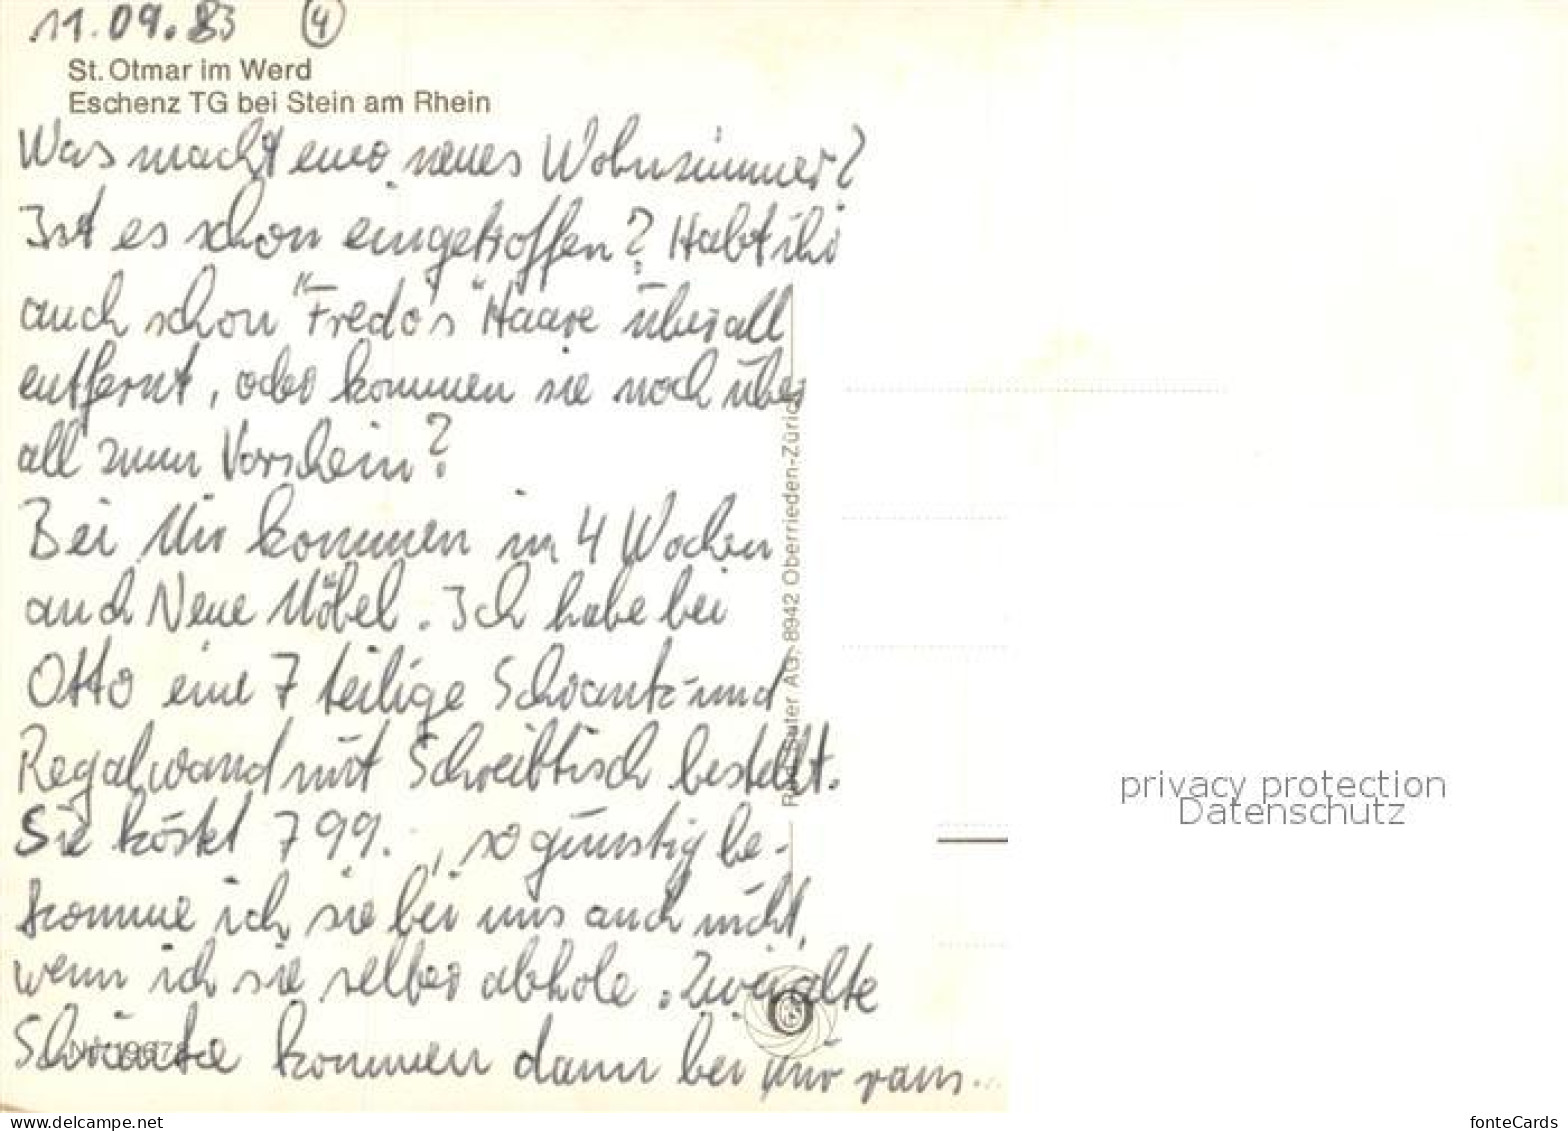 11.09.83 4
St. Otmar im Werd
Eschenz TG bei Stein am Rhein
Was macht euer neues Wohnzimmer?
Ist es schon eingetroffen? Habt ihr
auch schon "Fredo's" Haare überall
entfernt, oder kommen sie noch über
all zum Vorschein?
Bei Mir kommen in 4 Wochen
auch Neue Möbel. Ich habe bei
Otto eine 7 teilige Schrank- und
Regalwand mit Schreibtisch bestellt.
Sie kostet 799.-, so günstig be-
komme ich sie bei uns auch nicht,
wenn ich sie selber abhole. Zwei alte
Schränke kommen dann bei mir raus...
Suter AG, 8942 Oberrieden-Zürich
privacy protection
Datenschutz
delcampe.net
fonteCards